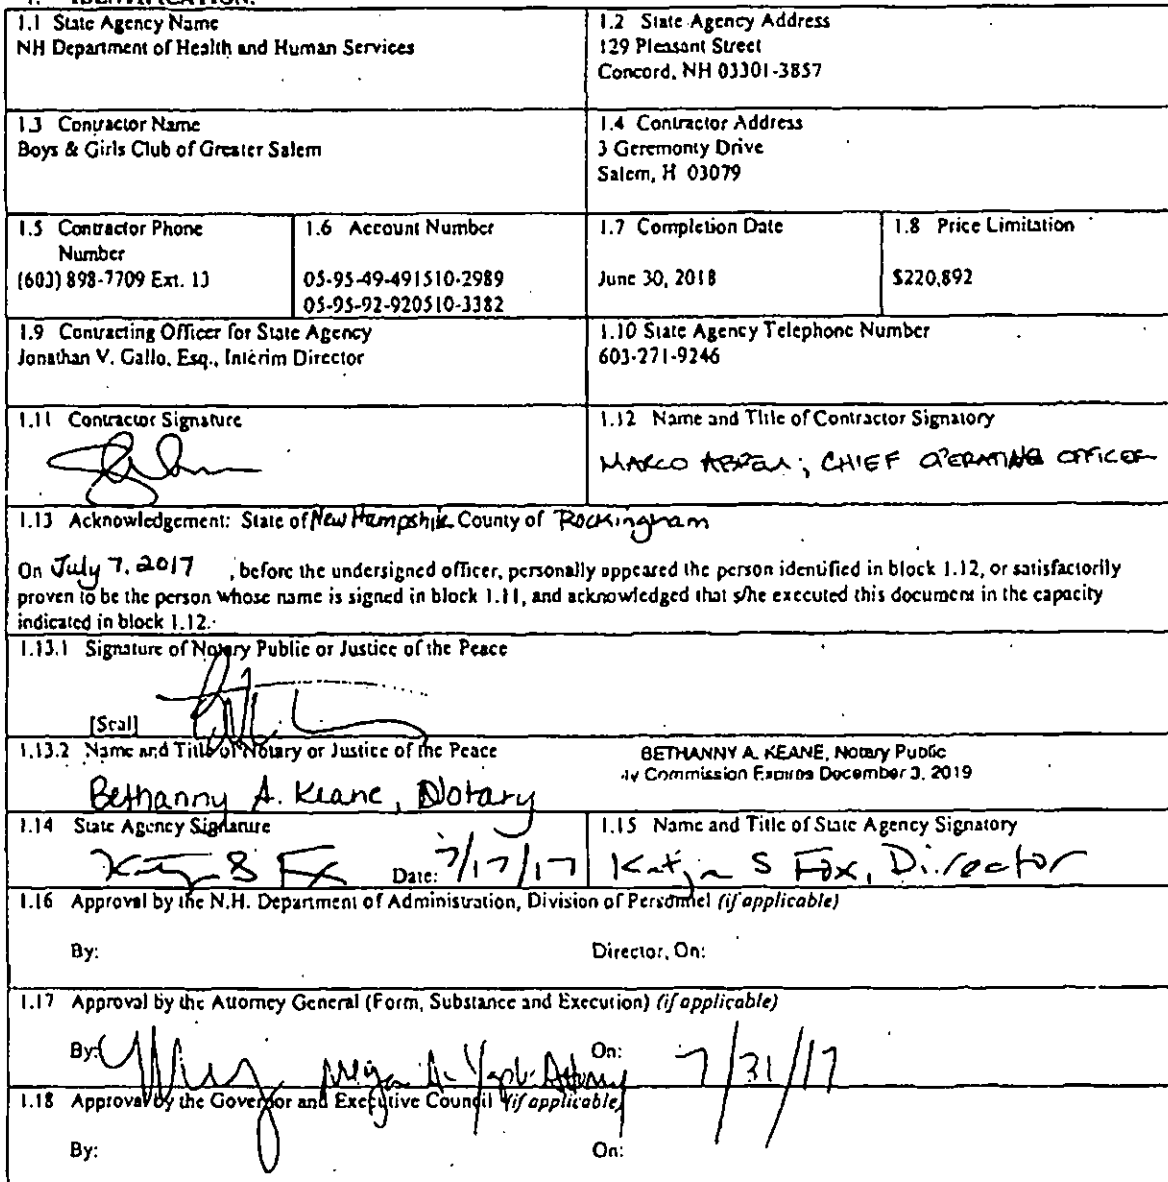 1. IDENTIFICATION.
1.1 State Agency Name
NH Department of Health and Human Services
1.2 State Agency Address
129 Pleasant Street
Concord, NH 03301-3857
1.3 Contractor Name
Boys & Girls Club of Greater Salem
1.4 Contractor Address
3 Geremonty Drive
Salem, H 03079
1.5 Contractor Phone
Number
(603) 898-7709 Ext. 13
1.6 Account Number
05-95-49-491510-2989
05-95-92-920510-3382
1.7 Completion Date
June 30, 2018
1.8 Price Limitation
$220,892
1.9 Contracting Officer for State Agency
Jonathan V. Gallo, Esq., Interim Director
1.10 State Agency Telephone Number
603-271-9246
1.11 Contractor Signature
1.12 Name and Title of Contractor Signatory
MARCO ABREU; CHIEF OPERATING OFFICER
1.13 Acknowledgement: State of New Hampshire County of Rockingham
On July 7, 2017 , before the undersigned officer, personally appeared the person identified in block 1.12, or satisfactorily
proven to be the person whose name is signed in block 1.11, and acknowledged that s/he executed this document in the capacity
indicated in block 1.12.
1.13.1 Signature of Notary Public or Justice of the Peace
[Seal]
1.13.2 Name and Title of Notary or Justice of the Peace
BETHANNY A. KEANE, Notary Public
My Commission Expires December 3, 2019
Bethanny A. Keane, Notary
1.14 State Agency Signature
Date: 7/17/17
1.15 Name and Title of State Agency Signatory
Katja S Fox, Director
1.16 Approval by the N.H. Department of Administration, Division of Personnel (if applicable)
By: Director, On:
1.17 Approval by the Attorney General (Form, Substance and Execution) (if applicable)
By: Attorney On: 7/31/17
1.18 Approval by the Governor and Executive Council (if applicable)
By: On: